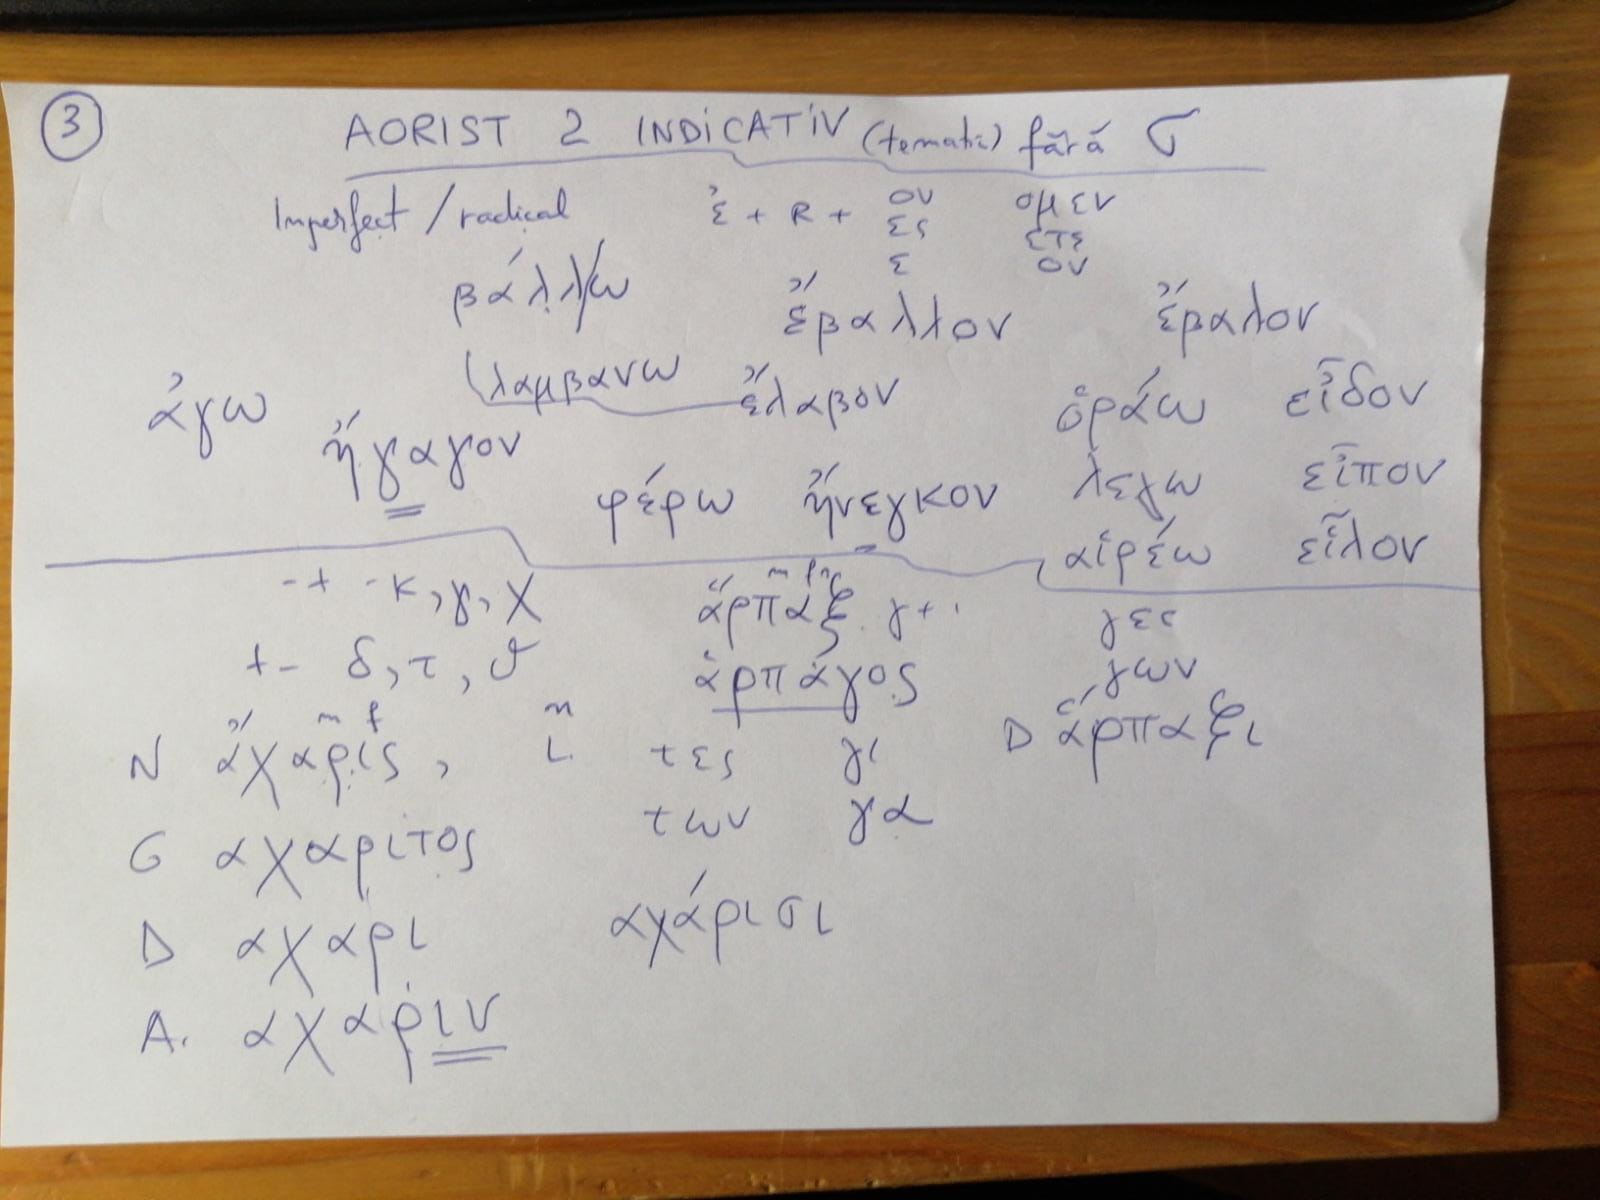 3
AORIST 2 INDICATIV (tematic) fără σ
Imperfect / radical ἐ + R + ον ομεν
ες ετε
ε ον
βάλλω ἔβαλλον ἔβαλον
λαμβανω ἔλαβον ὁράω εἶδον
ἀγω ἤγαγον
φέρω ἤνεγκον λεγω εἶπον
αἱρέω εἷλον
-+ -κ, γ, χ m f n ἅρπαξ γ+ι γες
+- δ, τ, θ ἁρπάγος γων
m f n
N ἄχαρις, ι τες γι D ἅρπαξι
G αχαριτος των γα
D αχαρι αχάρισι
A. αχαριν